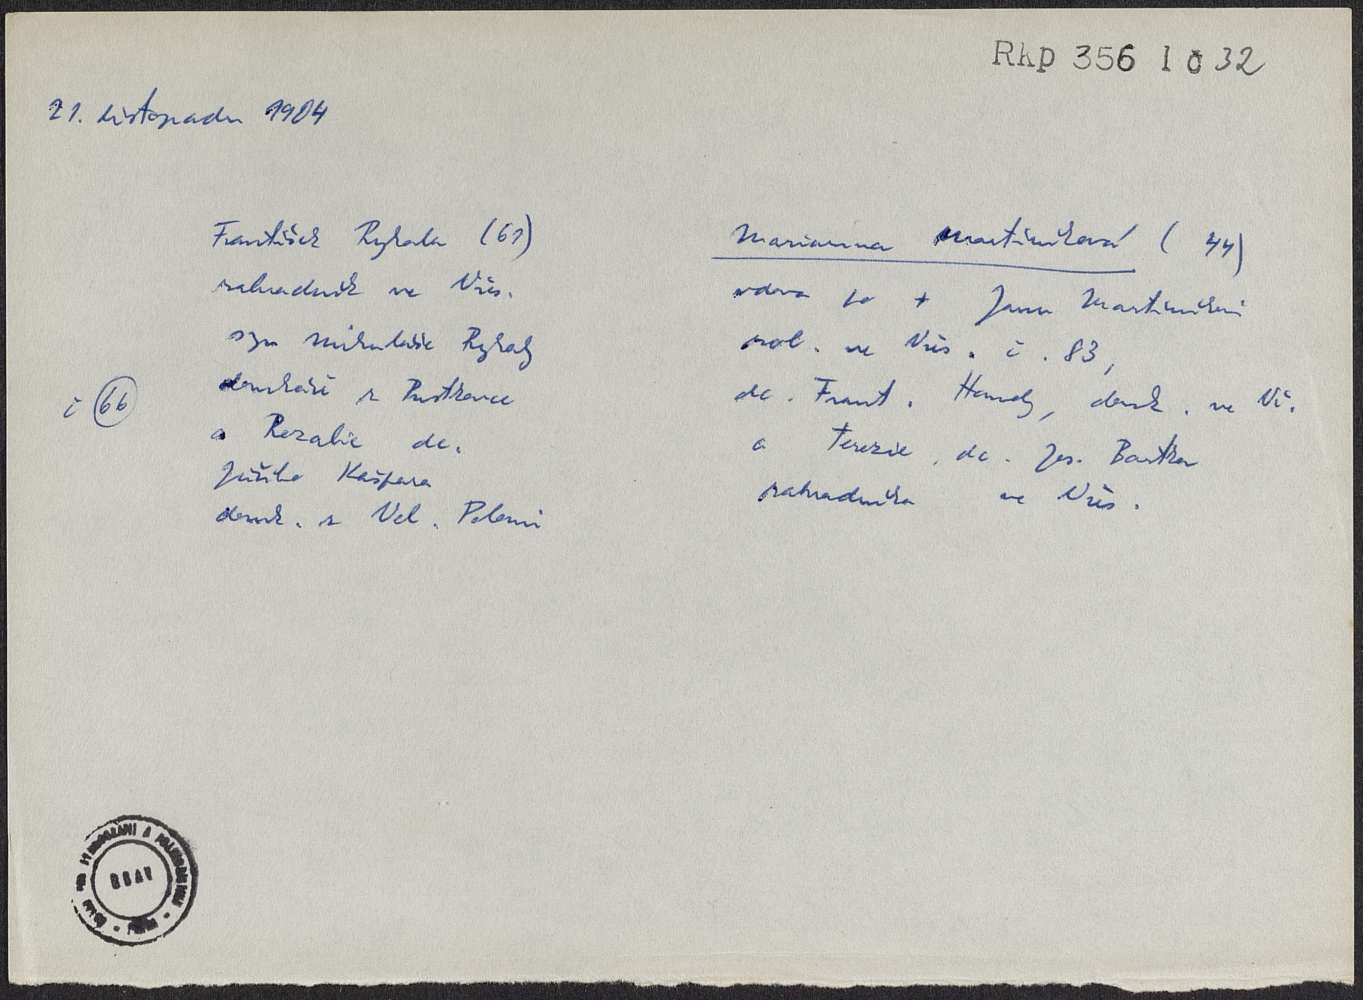 Rkp 356 I c 32
21. listopadu 1904
František Rykala (61)
zahradník ve Viš.
syn Mikuláše Rykaly
domkaře z Pustkovce
č 66
a Rozalie dc.
Jiřího Kašpara
domk. z Vel. Polomi
Marianna Martiníková (44)
vdova po + Janu Martiníkovi
rol. ve Viš. č. 83,
dc. Frant. Handy, domk. ve Vi.
a Terezie, dc. Jos. Bartka
zahradníka ve Viš.
ČSAV